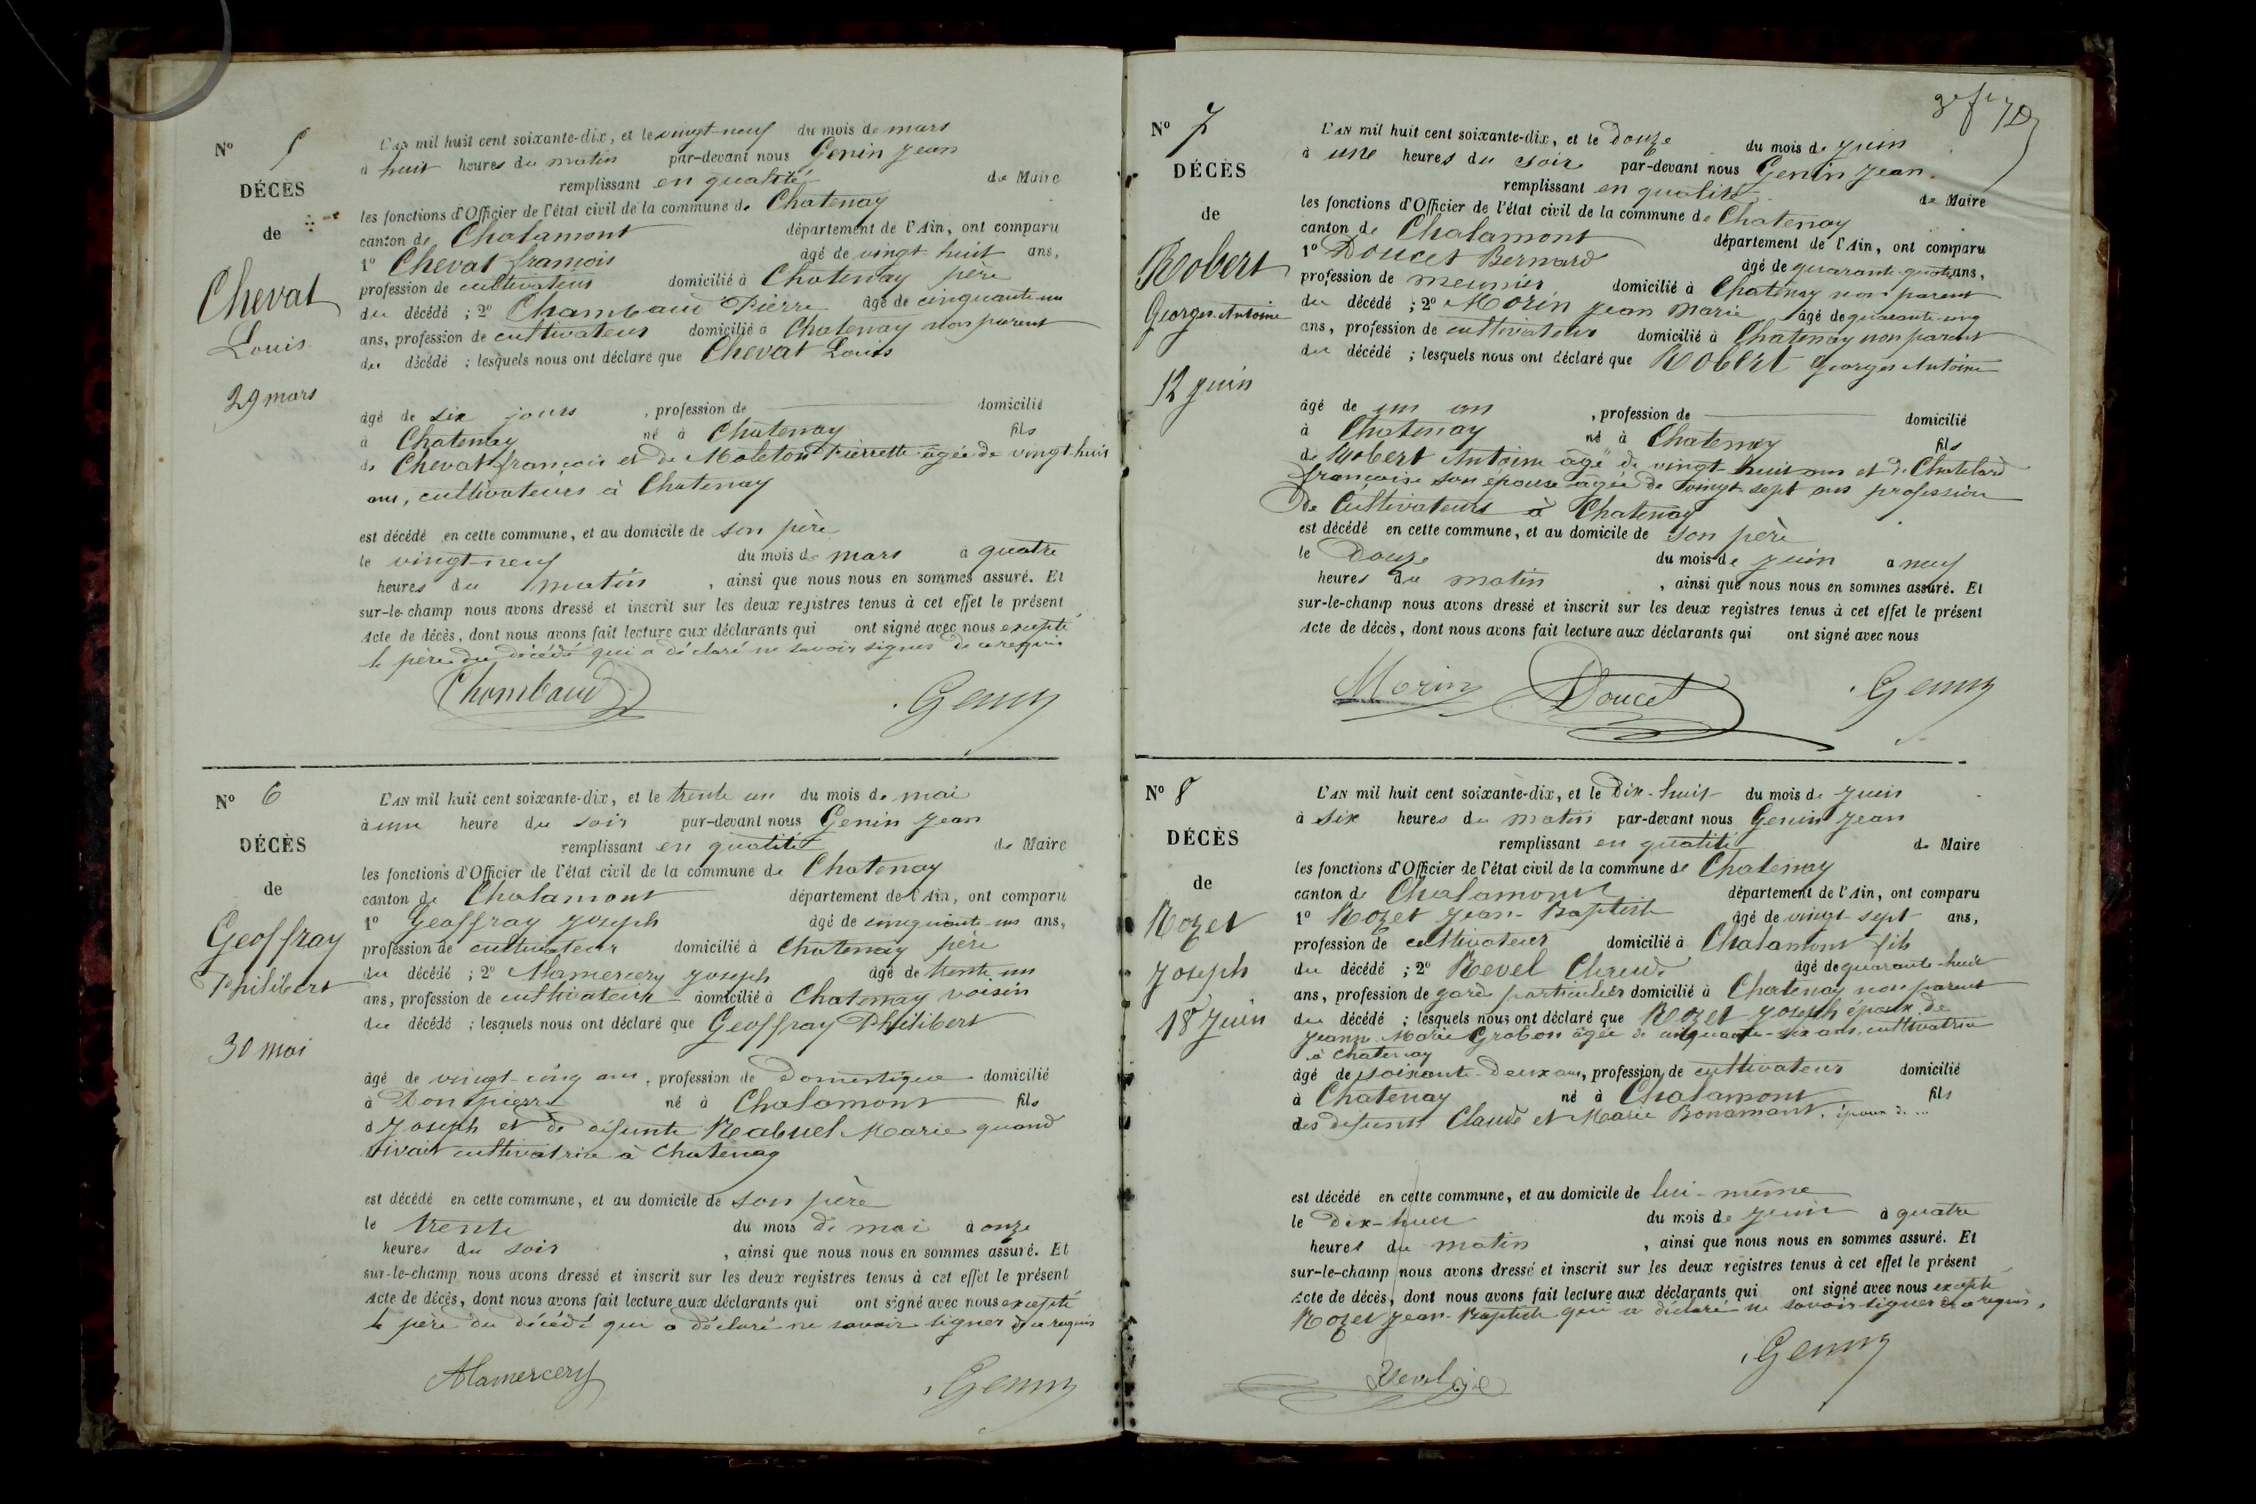 Nº 5
DÉCÈS
de
Chevat
Louis
29 mars
L'AN mil huit cent soixante-dix, et le vingt-neuf du mois de mars
à huit heures du matin par-devant nous Genin Jean
remplissant en qualité de Maire
les fonctions d'Officier de l'état civil de la commune de Chatenay
canton de Chalamont département de l'Ain, ont comparu
1º Chevat françois âgé de vingt huit ans,
profession de cultivateur domicilié à Chatenay père
du décédé ; 2º Chambaud Pierre âgé de cinquante-un
ans, profession de cultivateur domicilié à Chatenay non parent
du décédé ; lesquels nous ont déclaré que Chevat Louis
âgé de six jours , profession de domicilié
à Chatenay né à Chatenay fils
de Chevat françois et de Moleton Pierrette âgée de vingt-huit
ans, cultivateurs à Chatenay
est décédé en cette commune, et au domicile de son père
le vingt-neuf du mois de mars à quatre
heures du matin , ainsi que nous nous en sommes assuré. Et
sur-le-champ nous avons dressé et inscrit sur les deux registres tenus à cet effet le présent
Acte de décès, dont nous avons fait lecture aux déclarants qui ont signé avec nous excepté
le père du décédé qui a déclaré ne savoir signer de ce requis
Chambaud Genin
Nº 6
DÉCÈS
de
Geoffray
Philibert
30 mai
L'AN mil huit cent soixante-dix, et le trente un du mois de mai
à une heure du soir par-devant nous Genin Jean
remplissant en qualité de Maire
les fonctions d'Officier de l'état civil de la commune de Chatenay
canton de Chalamont département de l'Ain, ont comparu
1º Geoffray Joseph âgé de cinquante-un ans,
profession de cultivateur domicilié à Chatenay père
du décédé ; 2º Mamercery Joseph âgé de trente un
ans, profession de cultivateur domicilié à Chatenay voisin
du décédé ; lesquels nous ont déclaré que Geoffray Philibert
âgé de vingt-cinq ans , profession de Domestique domicilié
à Dompierre né à Chalamont fils
d Joseph et de défunte Rabuel Marie quand
vivait cultivatrice à Chatenay
est décédé en cette commune, et au domicile de son père
le trente du mois de mai à onze
heures du soir , ainsi que nous nous en sommes assuré. Et
sur-le-champ nous avons dressé et inscrit sur les deux registres tenus à cet effet le présent
Acte de décès, dont nous avons fait lecture aux déclarants qui ont signé avec nous excepté
le père du décédé qui a déclaré ne savoir signer de ce requis
Mamercery Genin
Nº 7
DÉCÈS
de
Robert
Georges Antoine
12 juin
L'AN mil huit cent soixante-dix, et le Douze du mois de juin
à une heures du soir par-devant nous Genin Jean
remplissant en qualité de Maire
les fonctions d'Officier de l'état civil de la commune de Chatenay
canton de Chalamont département de l'Ain, ont comparu
1º Doucet Bernard âgé de quarante-quatre ans,
profession de meunier domicilié à Chatenay non parent
du décédé ; 2º Morin Jean Marie âgé de quarante-cinq
ans, profession de cultivateur domicilié à Chatenay non parent
du décédé ; lesquels nous ont déclaré que Robert Georges Antoine
âgé de un an , profession de domicilié
à Chatenay né à Chatenay fils
de Robert Antoine âgé de vingt huit ans et de Chatelard
françoise son épouse âgée de vingt-sept ans profession
De Cultivateurs à Chatenay
est décédé en cette commune, et au domicile de son père
le Douze du mois de juin à neuf
heures du matin , ainsi que nous nous en sommes assuré. Et
sur-le-champ nous avons dressé et inscrit sur les deux registres tenus à cet effet le présent
Acte de décès, dont nous avons fait lecture aux déclarants qui ont signé avec nous
Morin Doucet Genin
Nº 8
DÉCÈS
de
Rozet
Joseph
18 Juin
L'AN mil huit cent soixante-dix, et le Dix-huit du mois de Juin
à six heures du matin par-devant nous Genin Jean
remplissant en qualité de Maire
les fonctions d'Officier de l'état civil de la commune de Chatenay
canton de Chalamont département de l'Ain, ont comparu
1º Rozet Jean-Baptiste âgé de vingt-sept ans,
profession de cultivateur domicilié à Chalamont fils
du décédé ; 2º Revel Claude âgé de quarante-huit
ans, profession de garde particulier domicilié à Chatenay non parent
du décédé ; lesquels nous ont déclaré que Rozet Joseph époux de
Jeanne Marie Grobon âgée de cinquante-six ans cultivatrice
à Chatenay
âgé de soixante-Deux ans, profession de cultivateur domicilié
à Chatenay né à Chalamont fils
des défunts Claude et Marie Bonamant
est décédé en cette commune, et au domicile de lui-même
le Dix-huit du mois de juin à quatre
heures du matin , ainsi que nous nous en sommes assuré. Et
sur-le-champ nous avons dressé et inscrit sur les deux registres tenus à cet effet le présent
Acte de décès, dont nous avons fait lecture aux déclarants qui ont signé avec nous excepté
Rozet Jean-Baptiste qui a déclaré ne savoir signer de ce requis.
Genin
Revel